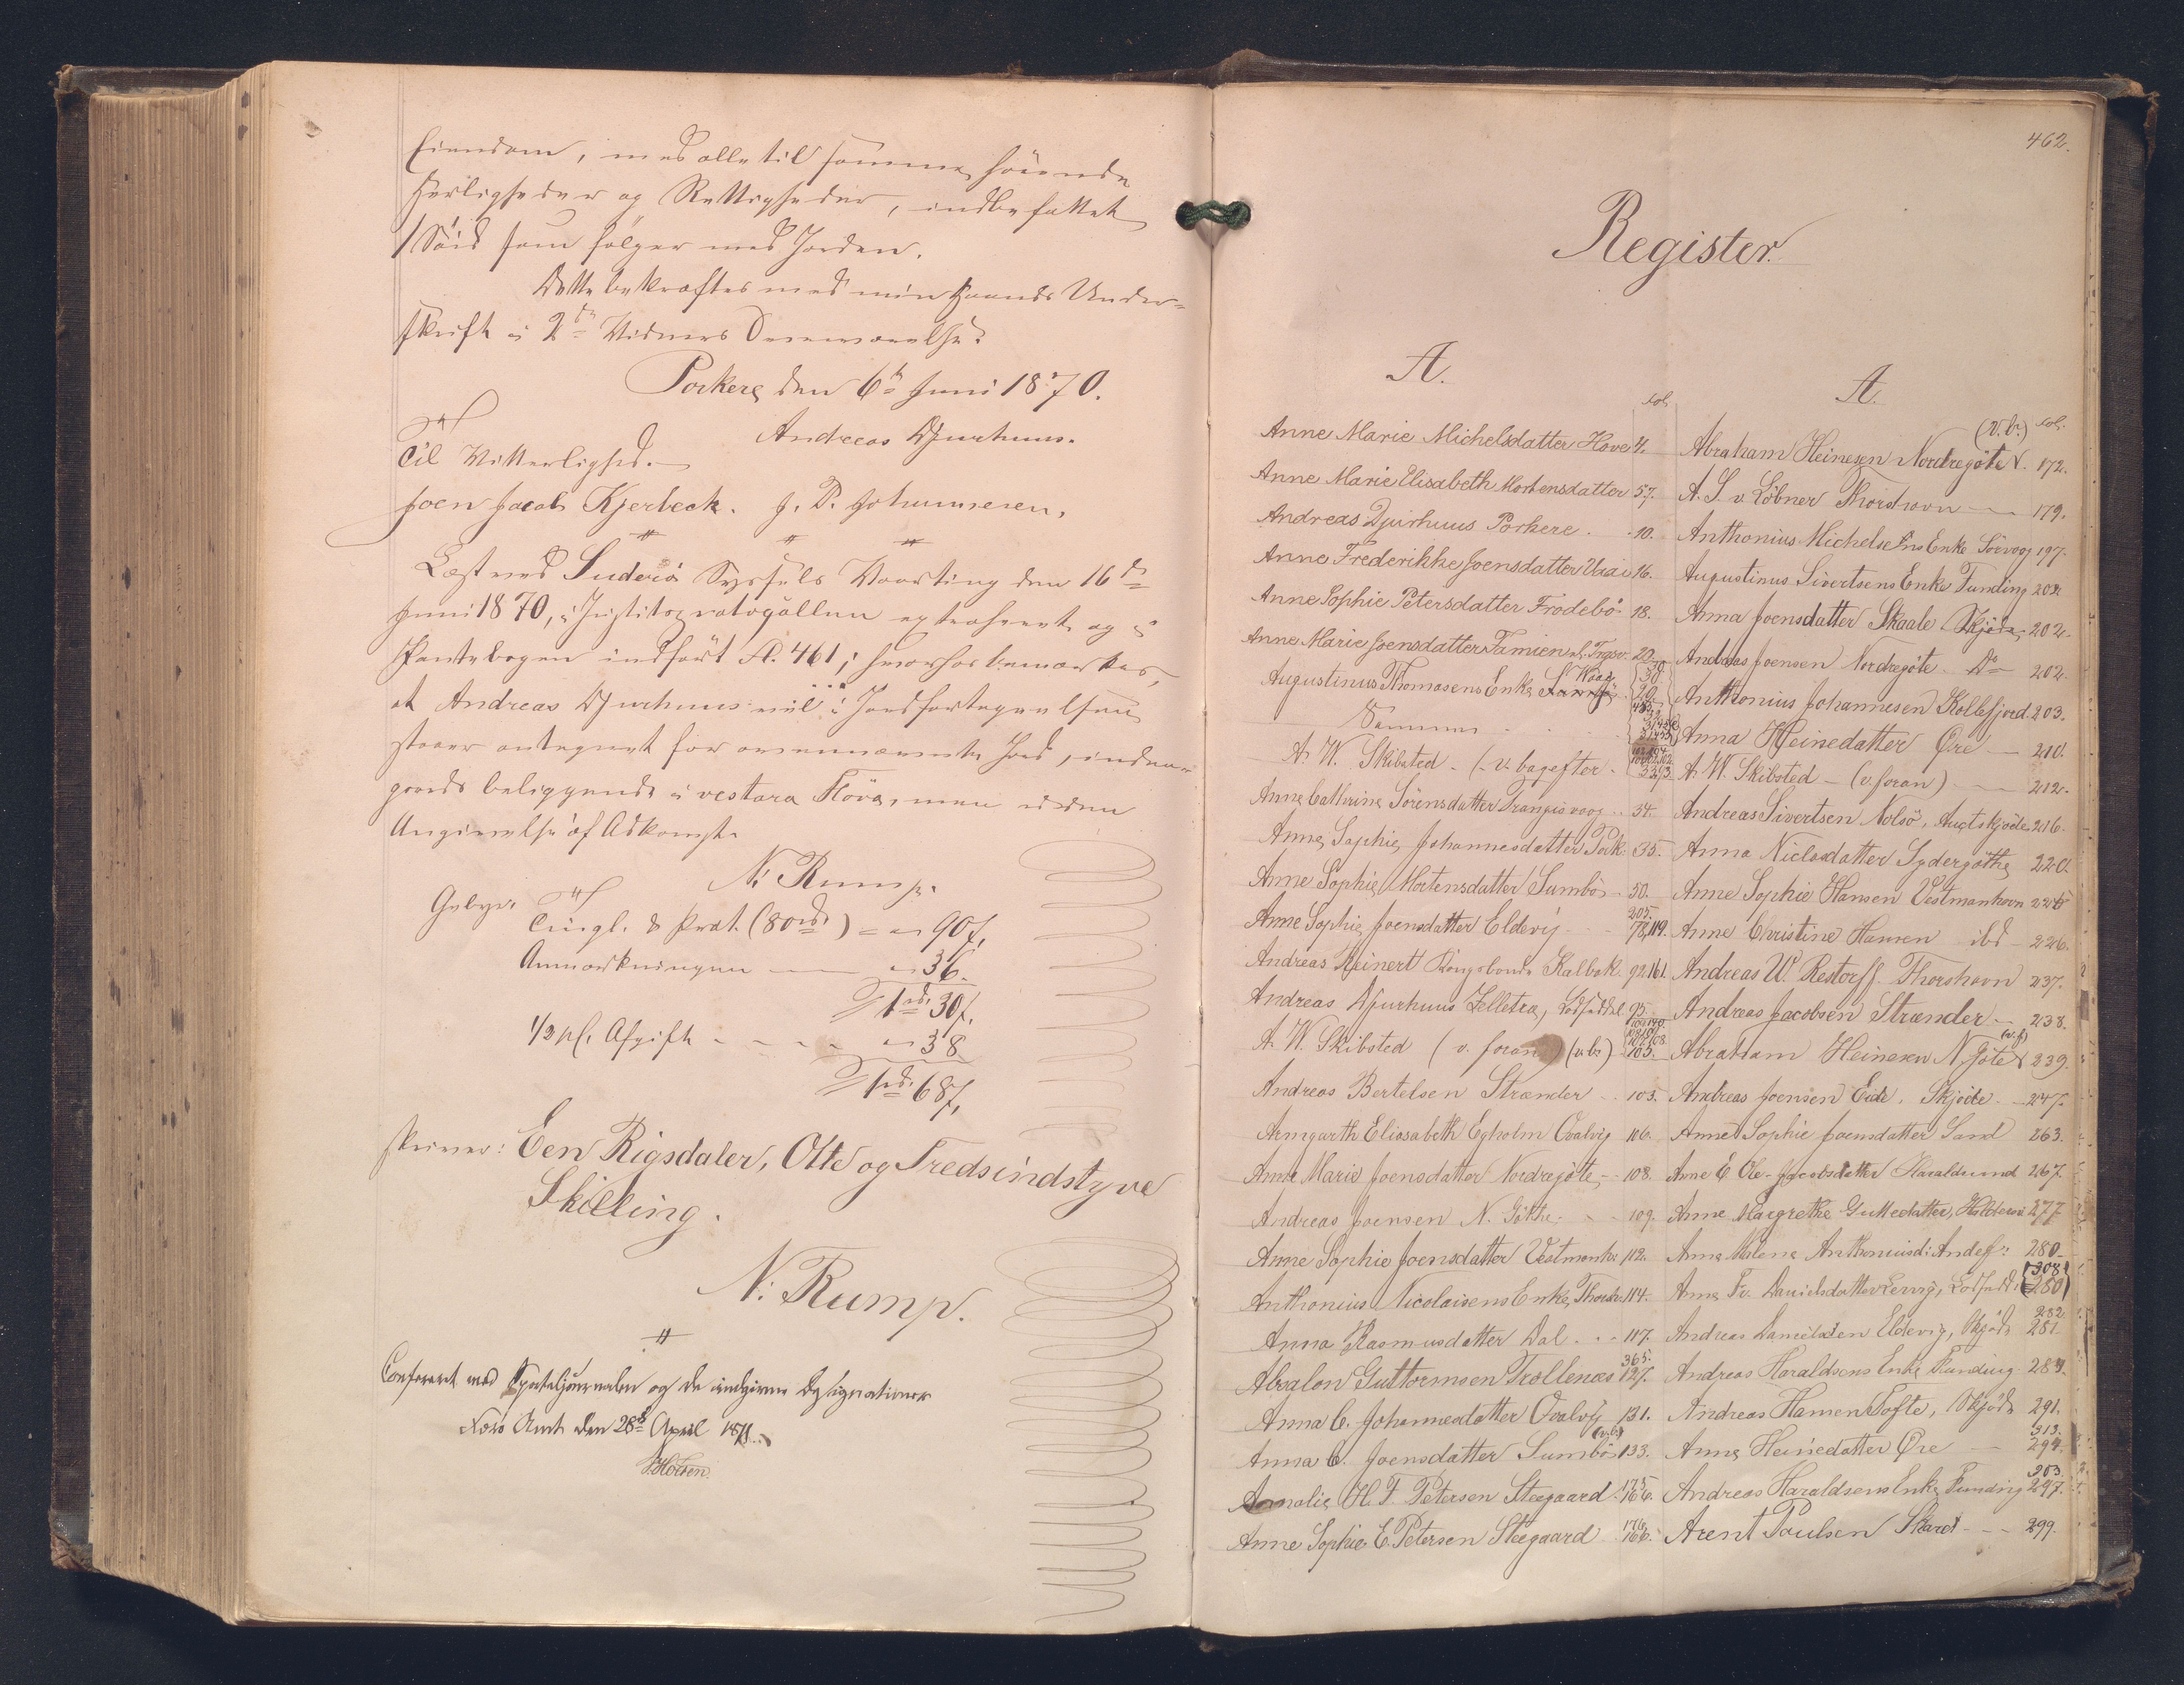 Eiendom, med alle til samme hörende
Herligheder og Rettigheder, indbefattet
1 Söid som fölger med Jorden.
Dette bekræftes med min Haands Under-
skrift i 2de Vidners Overværelse.
Porkere den 6te Juni 1870.
Andreas Djurhuus.
Til Vitterlighed.
Joen Jacob Kjerbeck. J. P. Johannesen.
Læst ved Suderö Syssels Vaarting den 16de
Juni 1870, i Justitsprotocollen extraheret og i
Pantebogen indfört Fl. 461; hvorhos bemærkes,
at Andreas Djurhuus vel i Jordfortegnelsen
staaer antegnet for ovennævnte Jord, inden-
gaards beliggende i vestara Flöva, men uden
Angivelse af Adkomst.
N: Rump.
Gebyr.
Tingl. & Prot. (80rd) = " 90 f.
Anmærkningen — " 36.
1rd 30 f.
1/2 pC. Afgift - - - " 38
1rd 68 f.
skriver: Een Rigsdaler, Otte og Tredsindstyve
Skilling.
N: Rump.
Confereret med Sporteljournalen og de indgivne Designationer
Færø Amt den 28de April 1871.
Holten.
462.
Register.
A.
fol.
Anne Marie Michelsdatter Hove 4.
Anne Marie Elisabeth Mortensdatter 57.
Andreas Djurhuus Porkere . . 10.
Anne Frederikke Joensdatter Vaai 16.
Anne Sophie Petersdatter Frodebö - 18.
Anne Marie Joensdatter Famien 20.
Augustinus Thomasens Enke Waag 30. 29.
Sammes
A. W. Skibsted - (v. bagefter
Anne Cathrine Sörensdatter Trangisvaag . . 34.
Anne Sophie Johannesdatter Pork. 35.
Anne Sophie Mortensdatter Sumbö - 50.
Anne Sophie Joensdatter Eldevig - - 205. 78, 119.
Andreas Reinert Kongsbonde Kalbak. 92. 161.
Andreas Djurhuus Zelletræ, 95.
A. W. Skibsted (v. foran) (v. b.) 103.
Andreas Bertelsen Strænder . . 103.
Armgarth Eliasabeth Egholm Qvalvig 106.
Anne Marie Joensdatter Nordregöte - 108.
Andreas Joensen N. Göthe - - 109.
Anne Sophie Joensdatter Vestmanh. 112.
Anthonius Nicolaisens Enke, Thorsh. 114.
Anna Rasmusdatter Dal . . . 117.
Absalon Guttormsen Trollenæs 365. 127.
Anna C. Johannesdatter Qvalvig 131.
Anna C. Joensdatter Sumbö (v. b.) 133.
Amalie H. F. Petersen Steegaard 175. 166.
Anne Sophie E. Petersen Steegaard 176. 166.
A.
fol.
Abraham Heinesen Nordregöte (v. b.) 172.
A. S. v. Löbner Thorshavn — 179.
Anthonius Michelsens Enke Sörvaag 197.
Augustinus Sivertsens Enke Funding 202
Anna Joensdatter Skaale Skjöde 202.
Andreas Joensen Nordregöte Do 202.
Anthonius Johannesen Kollefjord. 203.
Anna Heinedatter Øre — 210.
A. W. Skibsted — (v. foran) — 212.
Andreas Sivertsen Nolsö, Auctskjöde 216.
Anna Niclasdatter Sydergöthe 220.
Anne Sophie Hansen Vestmanhavn 226
Anne Christine Hansen ibd — 226.
Andreas W. Restorff Thorshavn 237.
Andreas Jacobsen Strænder — 238.
Abraham Heinesen N. Göte (v. f.) 239.
Andreas Joensen Eide. Skjöde. — 247.
Anne Sophie Joensdatter Sand 263.
Anne E. Ole-Jacobsdatter Haraldsund 267.
Anne Margrethe Guttedatter, Haldersvi 277
Anna Malene Anthoniusd: Andef: 280.
Anne Fr. Danielsdatter Lervig, 308. 280
Andreas Danielsen Eldevig, Skjöde 282. 281.
Andreas Haraldsens Enke Funding 284.
Andreas Hansen Tofte, Skjöde 291.
Anne Heinedatter Øre — 313. 294.
Andreas Haraldsens Enke Funding 303. 297.
Arent Poulsen Skard - - - 299.